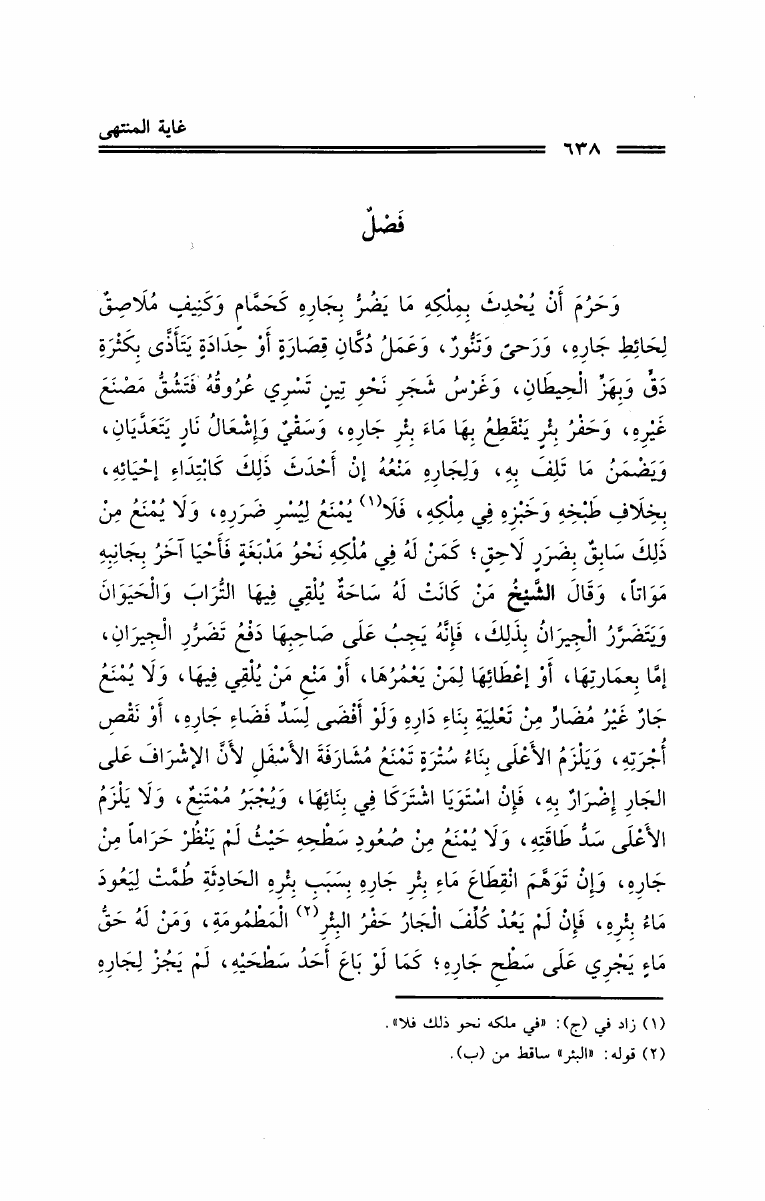 غاية المنتهى
٦٣٨
فَصْلٌ
وَحَرُمَ أَنْ يُحْدِثَ بِمِلْكِهِ مَا يَضُرُّ بِجَارِهِ كَحَمَّامٍ وَكَنِيفٍ مُلَاصِقٌ
لِحَائِطِ جَارِهِ، وَرَحىً وَتَنُّورٌ، وَعَمَلُ دُكَّانِ قِصَارَةٍ أَوْ حِدَادَةٍ يَتَأَذَّى بِكَثْرَةِ
دَقٍّ وَبِهَزِّ الْحِيطَانِ، وَغَرْسُ شَجَرِ نَحْوِ تِينٍ تَسْرِي عُرُوقُهُ فَتَشُقُّ مَصْنَعَ
غَيْرِهِ، وَحَفْرُ بِئْرٍ يَنْقَطِعُ بِهَا مَاءُ بِئْرِ جَارِهِ، وَسَقْيٌ وَإِشْعَالُ نَارٍ يَتَعَدَّيَانِ،
وَيَضْمَنُ مَا تَلِفَ بِهِ، وَلِجَارِهِ مَنْعُهُ إنْ أَحْدَثَ ذَلِكَ كَابْتِدَاءِ إحْيَائِهِ،
بِخِلَافِ طَبْخِهِ وَخَبْزِهِ فِي مِلْكِهِ، فَلَا(١) يُمْنَعُ لِيُسْرِ ضَرَرِهِ، وَلَا يُمْنَعُ مِنْ
ذَلِكَ سَابِقٌ بِضَرَرِ لَاحِقٍ؛ كَمَنْ لَهُ فِي مُلْكِهِ نَحْوُ مَدْبَغَةٍ فَأَحْيَا آخَرُ بِجَانِبِهِ
مَوَاتاً، وَقَالَ الشَّيْخُ مَنْ كَانَتْ لَهُ سَاحَةٌ يُلْقِي فِيهَا التُّرَابَ وَالْحَيَوَانَ
وَيَتَضَرَّرُ الْجِيرَانُ بِذَلِكَ، فَإِنَّهُ يَجِبُ عَلَى صَاحِبِهَا دَفْعُ تَضَرُّرِ الْجِيرَانِ،
إمَّا بِعمَارَتِهَا، أَوْ إعْطَائِهَا لِمَنْ يَعْمُرُهَا، أَوْ مَنْعِ مَنْ يُلْقِي فِيهَا، وَلَا يُمْنَعُ
جَارٌ غَيْرُ مُضَارٍّ مِنْ تَعْلِيَةِ بِنَاءِ دَارِهِ وَلَوْ أَفْضَى لِسَدِّ فَضَاءِ جَارِهِ، أَوْ نَقْصِ
أُجْرَتِهِ، وَيَلْزَمُ الأَعْلَى بِنَاءُ سُتْرَةٍ تَمْنَعُ مُشَارَفَةَ الأَسْفَلِ لأَنَّ الإشْرَافَ عَلَى
الجَارِ إضْرَارٌ بِهِ، فَإِنْ اسْتَوَيَا اشْتَرَكَا فِي بِنَائِهَا، وَيُجْبَرُ مُمْتَنِعٌ، وَلَا يَلْزَمُ
الأَعْلَى سَدُّ طَاقَتِهِ، وَلَا يُمْنَعُ مِنْ صُعُودِ سَطْحِهِ حَيْثُ لَمْ يَنْظُرْ حَرَاماً مِنْ
جَارِهِ، وَإِنْ تَوَهَّمَ انْقِطَاعَ مَاءِ بِئْرِ جَارِهِ بِسَبَبِ بِئْرِهِ الحَادِثَةِ طُمَّتْ لِيَعُودَ
مَاءُ بِئْرِهِ، فَإِنْ لَمْ يَعُدْ كُلِّفَ الْجَارُ حَفْرُ البِئْرِ(٢) الْمَطْمُومَةِ، وَمَنْ لَهُ حَقُّ
مَاءٍ يَجْرِي عَلَى سَطْحِ جَارِهِ؛ كَمَا لَوْ بَاعَ أَحَدُ سَطْحَيْهِ، لَمْ يَجُزْ لِجَارِهِ
(١) زاد في (ج): «في ملكه نحو ذلك فلا».
(٢) قوله: «البئر» ساقط من (ب).